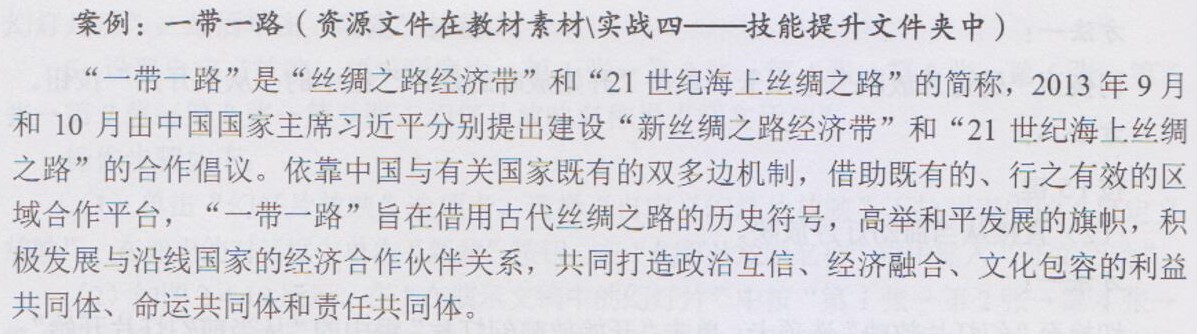 案例：一带一路（资源文件在教材素材\实战四——技能提升文件夹中）
“一带一路”是“丝绸之路经济带”和“21 世纪海上丝绸之路”的简称，2013 年 9 月
和 10 月由中国国家主席习近平分别提出建设“新丝绸之路经济带”和“21 世纪海上丝绸
之路”的合作倡议。依靠中国与有关国家既有的双多边机制，借助既有的、行之有效的区
域合作平台，“一带一路”旨在借用古代丝绸之路的历史符号，高举和平发展的旗帜，积
极发展与沿线国家的经济合作伙伴关系，共同打造政治互信、经济融合、文化包容的利益
共同体、命运共同体和责任共同体。